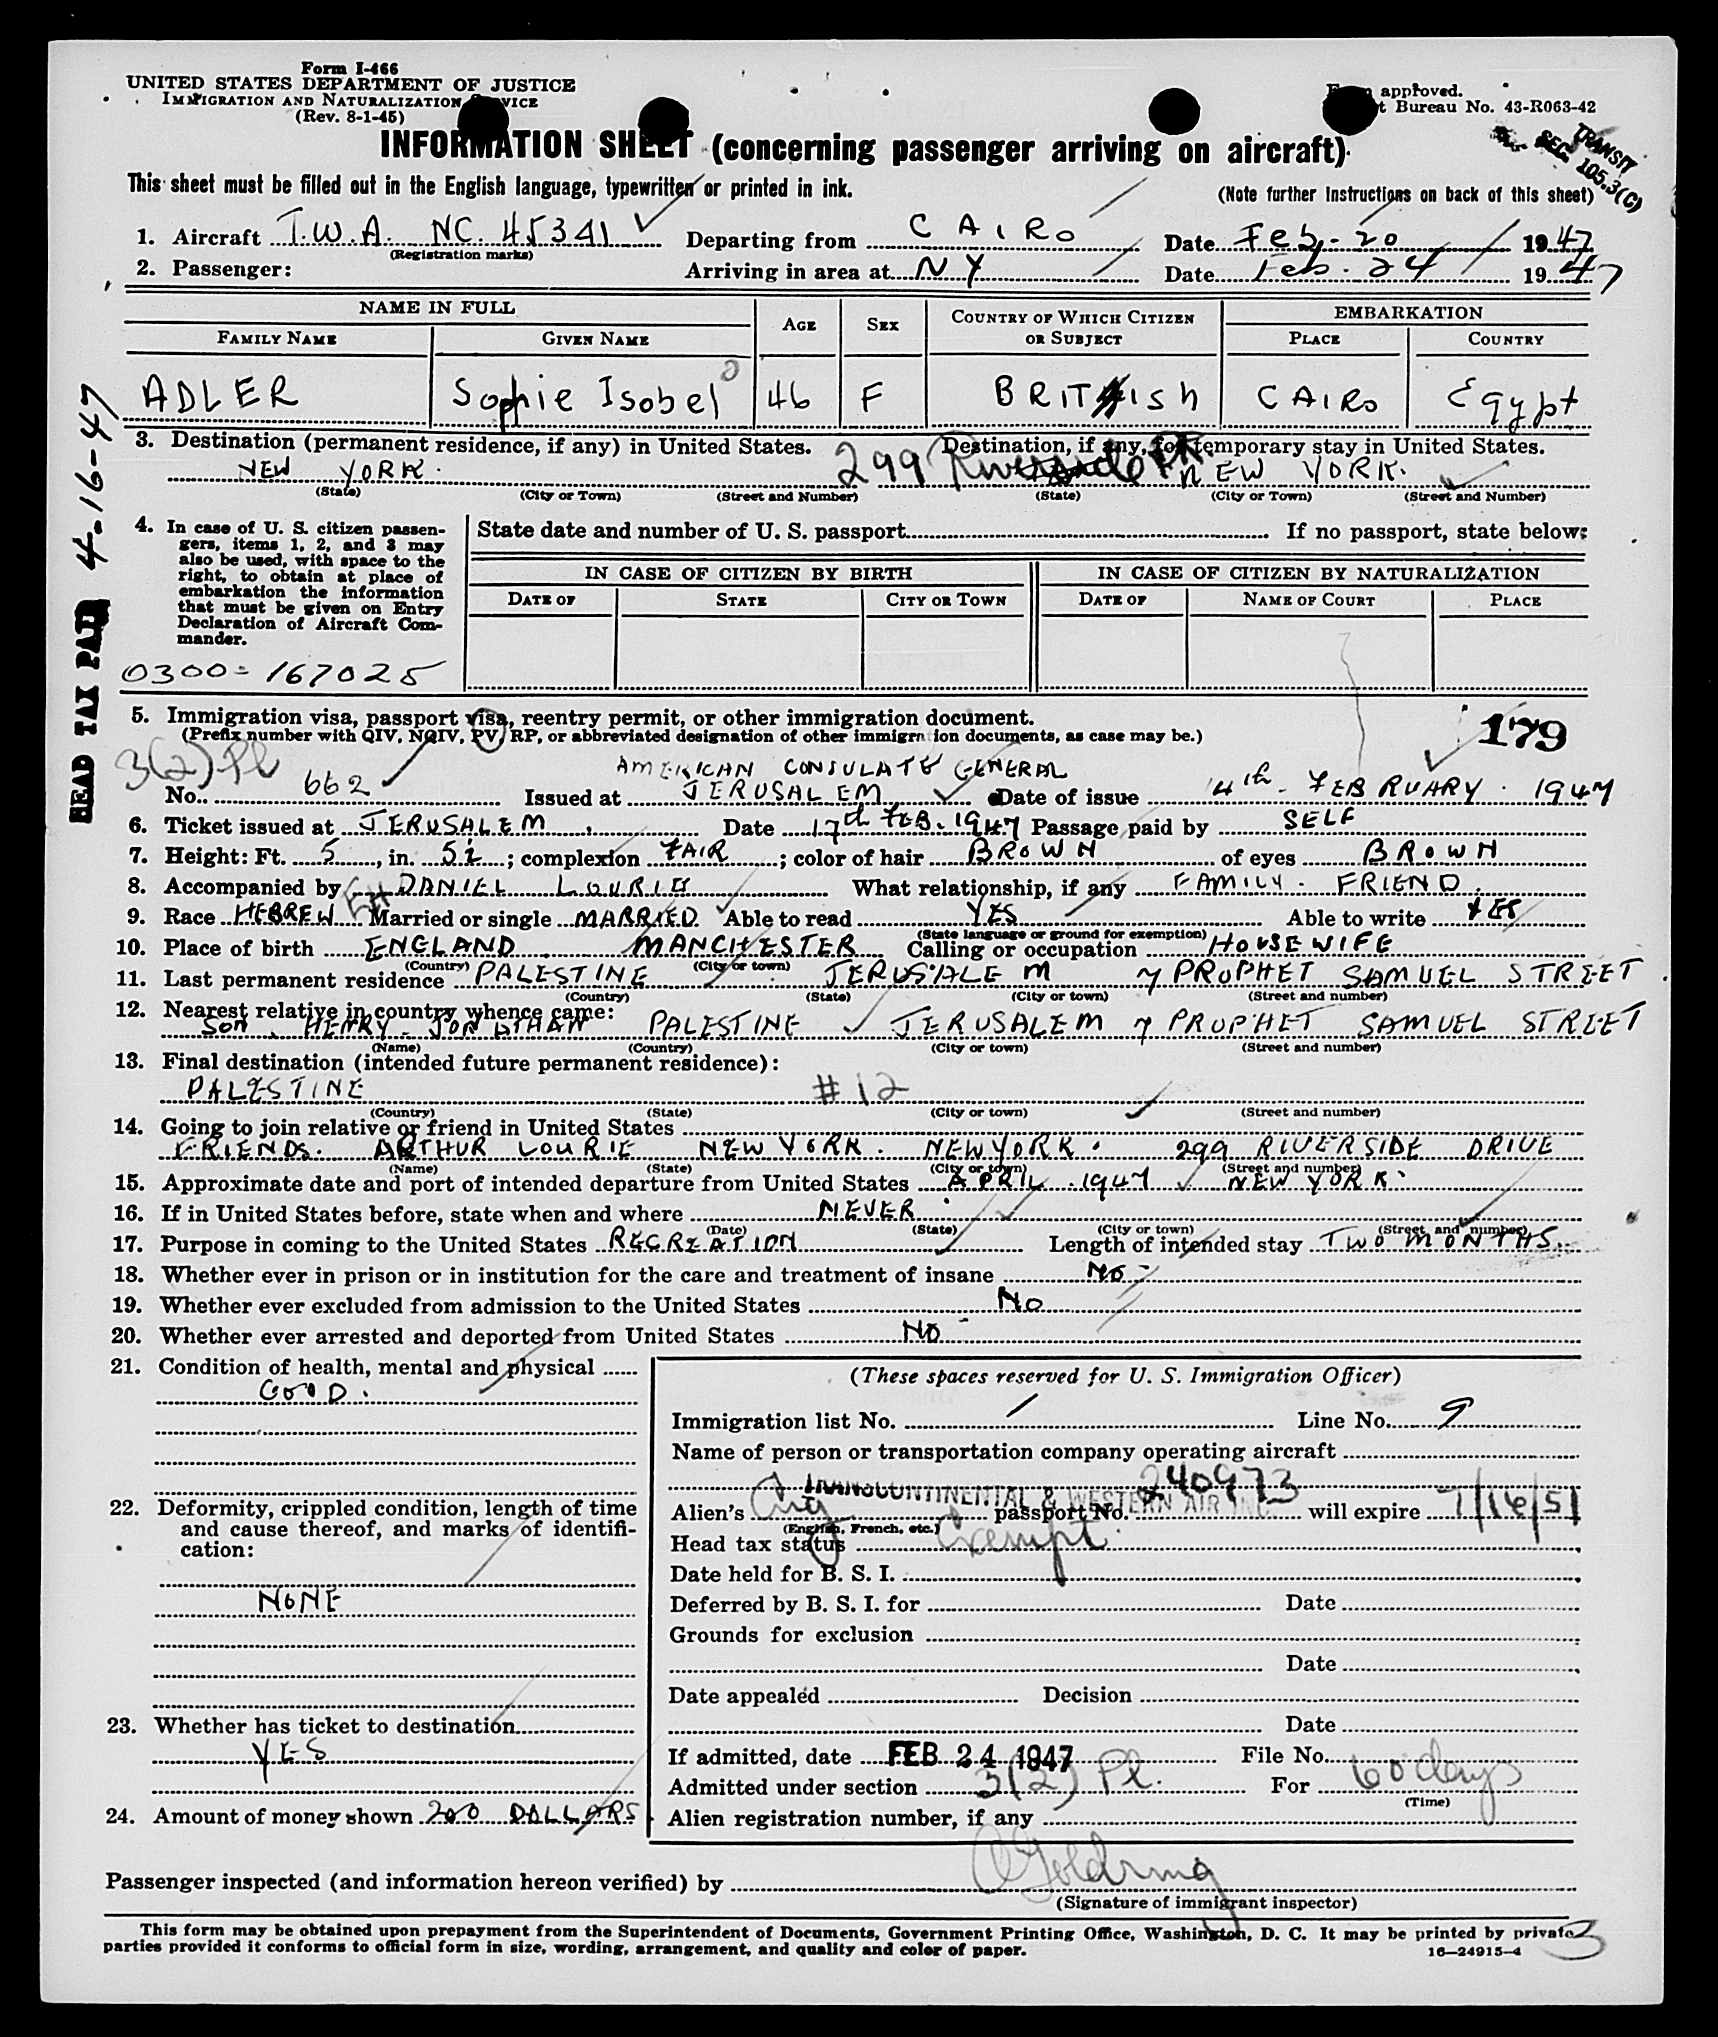 Form I-466
UNITED STATES DEPARTMENT OF JUSTICE
IMMIGRATION AND NATURALIZATION SERVICE
(Rev. 8-1-45)
approved.
Bureau No. 43-R063-42
TRANSIT
SEC. 105.3(C)
INFORMATION SHEET (concerning passenger arriving on aircraft)
This sheet must be filled out in the English language, typewritten or printed in ink.
(Note further instructions on back of this sheet)
1. Aircraft T.W.A. NC. 45341 Departing from CAIRO Date Feb. 20 1947
(Registration marks)
2. Passenger: Arriving in area at NY Date Feb. 24 1947
NAME IN FULL AGE SEX COUNTRY OF WHICH CITIZEN OR SUBJECT EMBARKATION
FAMILY NAME GIVEN NAME PLACE COUNTRY
ADLER Sophie Isobel 46 F BRITish CAIRO Egypt
3. Destination (permanent residence, if any) in United States. Destination, if any, for temporary stay in United States.
NEW YORK. 299 Riverside Dr NEW YORK.
(State) (City or Town) (Street and Number) (State) (City or Town) (Street and Number)
HEAD TAX PAID 4-16-47
4. In case of U. S. citizen passen-
gers, items 1, 2, and 3 may
also be used, with space to the
right, to obtain at place of
embarkation the information
that must be given on Entry
Declaration of Aircraft Com-
mander.
0300-167025
State date and number of U. S. passport If no passport, state below:
IN CASE OF CITIZEN BY BIRTH IN CASE OF CITIZEN BY NATURALIZATION
DATE OF STATE CITY OR TOWN DATE OF NAME OF COURT PLACE
5. Immigration visa, passport visa, reentry permit, or other immigration document.
(Prefix number with QIV, NQIV, PV, RP, or abbreviated designation of other immigration documents, as case may be.)
179
3(2) Pl
AMERICAN CONSULATE GENERAL
No. 662 Issued at JERUSALEM Date of issue 14th FEBRUARY. 1947
6. Ticket issued at JERUSALEM. Date 17th FEB. 1947 Passage paid by SELF
7. Height: Ft. 5, in. 5½; complexion FAIR; color of hair BROWN of eyes BROWN
8. Accompanied by DANIEL LOURIE What relationship, if any FAMILY. FRIEND.
9. Race HEBREW Married or single MARRIED Able to read YES Able to write YES
(State language or ground for exemption)
10. Place of birth ENGLAND. MANCHESTER Calling or occupation HOUSEWIFE
(Country) (City or town)
11. Last permanent residence PALESTINE JERUSALEM 7 PROPHET SAMUEL STREET.
(Country) (State) (City or town) (Street and number)
12. Nearest relative in country whence came:
SON. HENRY. JONATHAN PALESTINE JERUSALEM 7 PROPHET SAMUEL STREET
(Name) (Country) (City or town) (Street and number)
13. Final destination (intended future permanent residence):
PALESTINE #12
(Country) (State) (City or town) (Street and number)
14. Going to join relative or friend in United States
FRIENDS. ARTHUR LOURIE NEW YORK. NEW YORK. 299 RIVERSIDE DRIVE
(Name) (State) (City or town) (Street and number)
15. Approximate date and port of intended departure from United States APRIL. 1947 NEW YORK.
16. If in United States before, state when and where NEVER
(Date) (State) (City or town) (Street and number)
17. Purpose in coming to the United States RECREATION Length of intended stay TWO MONTHS.
18. Whether ever in prison or in institution for the care and treatment of insane No.
19. Whether ever excluded from admission to the United States No
20. Whether ever arrested and deported from United States No
21. Condition of health, mental and physical
GOOD.
22. Deformity, crippled condition, length of time
and cause thereof, and marks of identifi-
cation:
NONE
23. Whether has ticket to destination
YES
24. Amount of money shown 200 DOLLARS
(These spaces reserved for U. S. Immigration Officer)
Immigration list No. 1 Line No. 9
Name of person or transportation company operating aircraft
TRANSCONTINENTAL & WESTERN AIR INC.
Alien's Eng passport No. 240973 will expire 7/16/51
(English, French, etc.)
Head tax status Exempt
Date held for B. S. I.
Deferred by B. S. I. for Date
Grounds for exclusion
Date
Date appealed Decision
Date
If admitted, date FEB 24 1947 File No.
Admitted under section 3(2) Pl. For 60 days
(Time)
Alien registration number, if any
Passenger inspected (and information hereon verified) by Goldring
(Signature of immigrant inspector)
This form may be obtained upon prepayment from the Superintendent of Documents, Government Printing Office, Washington, D. C. It may be printed by private
parties provided it conforms to official form in size, wording, arrangement, and quality and color of paper.
16—24915-4
3